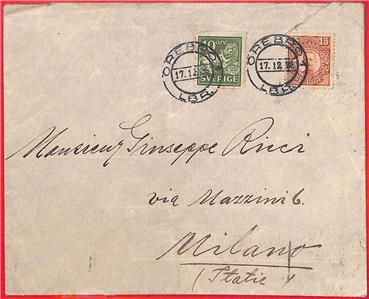 ÖREBRO 1
17.12.
LBR.
10 ÖRE
SVERIGE
ÖREBRO 1
17.12.
LBR.
15
Monsieur Giuseppe Ricci
via Mazzini 6.
Milano
(Italie)